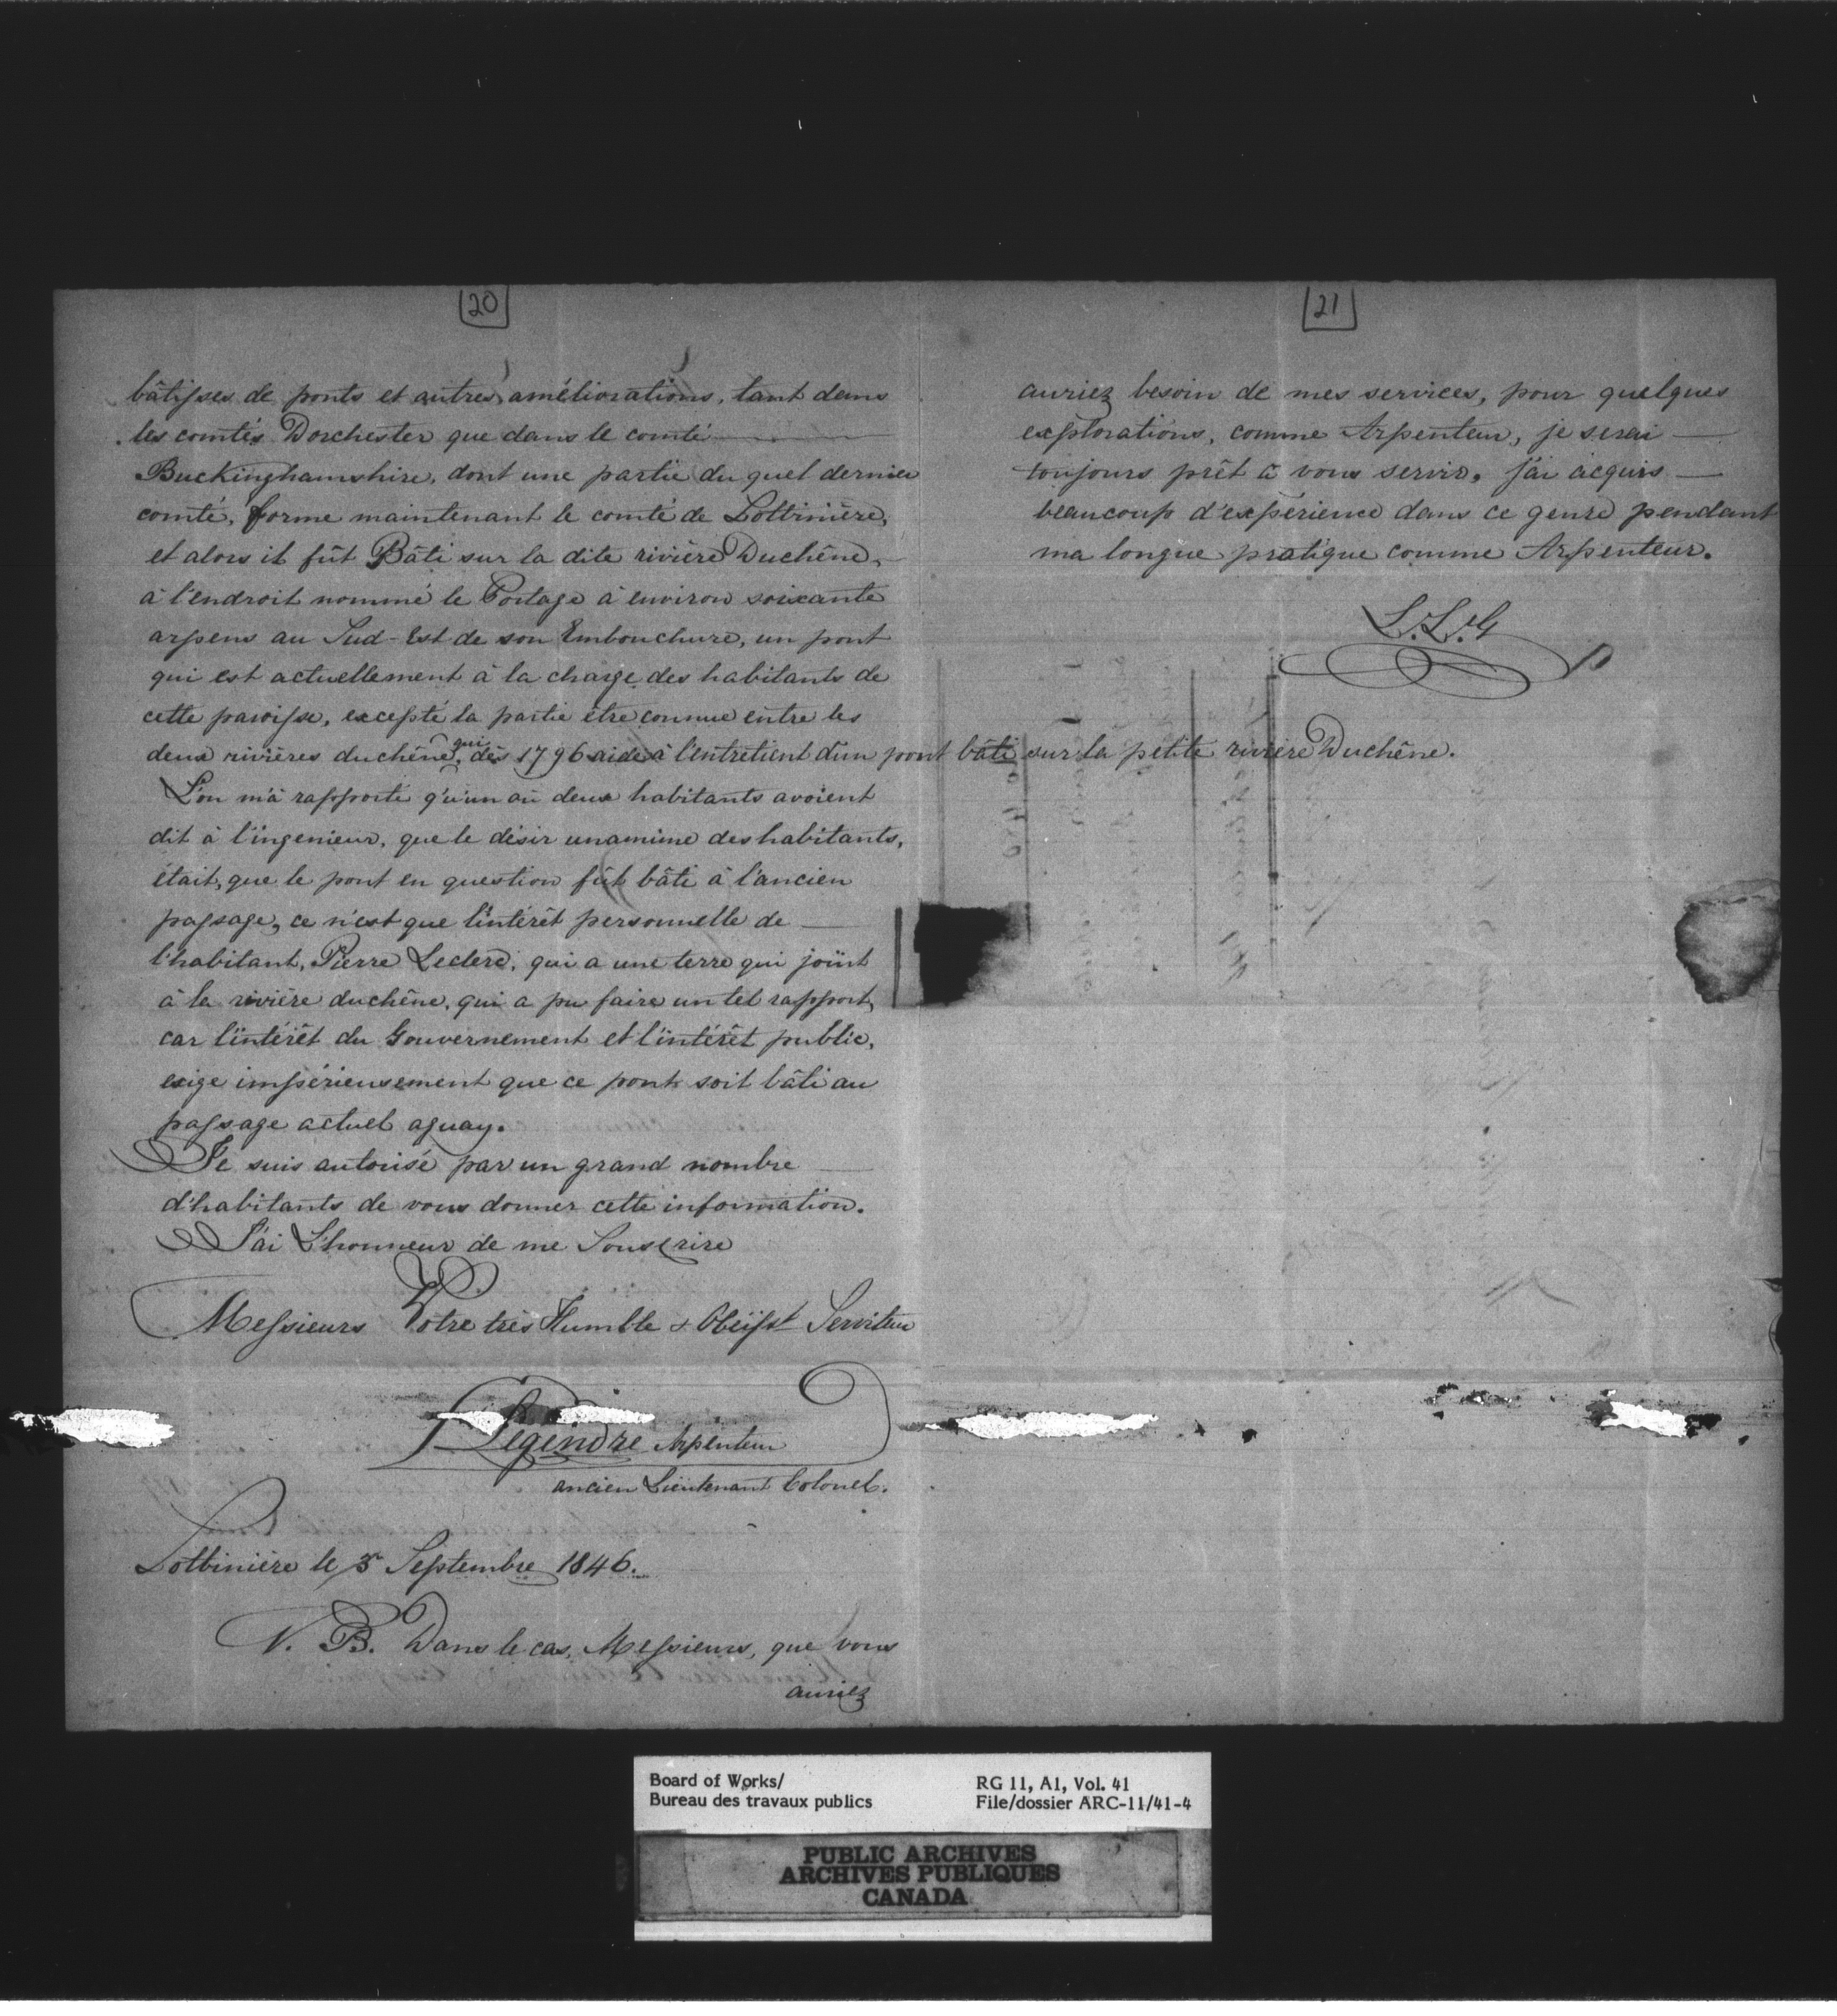 20
bâtisses de ponts et autres améliorations, tant dans
les comtés Dorchester que dans le comté
Buckinghamshire, dont une partie du quel dernier
comté, forme maintenant le comté de Lotbinière,
et alors il fût Bâti sur la dite rivière Duchêne,
à l'endroit nommé le Portage à environ soixante
arpens au Sud-Est de son Embouchure, un pont
qui est actuellement à la charge des habitants de
cette paroisse, excepté la partie être connue entre les
deux rivières duchêne, qui dès 1796 aide à l'entretient d'un pont bâti sur la petite rivière Duchêne.
L'on m'a rapporté qu'un ou deux habitants avoient
dit à l'ingenieur, que le désir unamime des habitants,
était, que le pont en question fût bâti à l'ancien
passage, ce n'est que l'intérêt personnelle de
l'habitant, Pierre Leclerc, qui a une terre qui joint
à la rivière duchêne, qui a pu faire un tel rapport,
car l'intérêt du Gouvernement et l'intérêt public,
exige impérieusement que ce pont soit bâti au
passage actuel aguay.
Je suis autorisé par un grand nombre
d'habitants de vous donner cette information.
J'ai L'honneur de me Souscrire
Messieurs Votre très Humble & Obéisst Serviteur
Legendre Arpenteur
ancien Lieutenant Colonel.
Lotbinière le 5 Septembre 1846.
N. B. Dans le cas, Messieurs, que vous
auriez
21
auriez besoin de mes services, pour quelques
explorations, comme Arpenteur, je serai
toujours prêt à vous servir, j'ai acquis
beaucoup d'expérience dans ce genre pendant
ma longue pratique comme Arpenteur.
L.L.G
Board of Works/
Bureau des travaux publics
RG 11, A1, Vol. 41
File/dossier ARC-11/41-4
PUBLIC ARCHIVES
ARCHIVES PUBLIQUES
CANADA